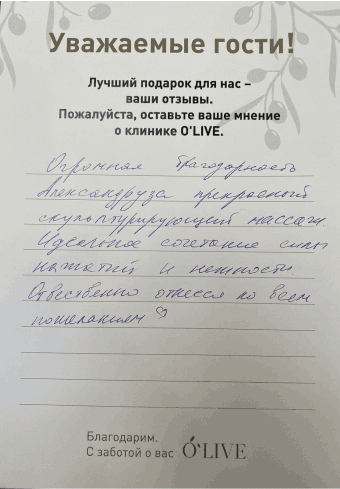 Уважаемые гости!
Лучший подарок для нас –
ваши отзывы.
Пожалуйста, оставьте ваше мнение
о клинике O'LIVE.
Огромная благодарность
Александру за прекрасный
скульптурирующий массаж.
Идеальное сочетание силы
нажатий и нежности
Отвественно отнесся ко всем
пожеланиям ♡
Благодарим.
С заботой о вас O'LIVE